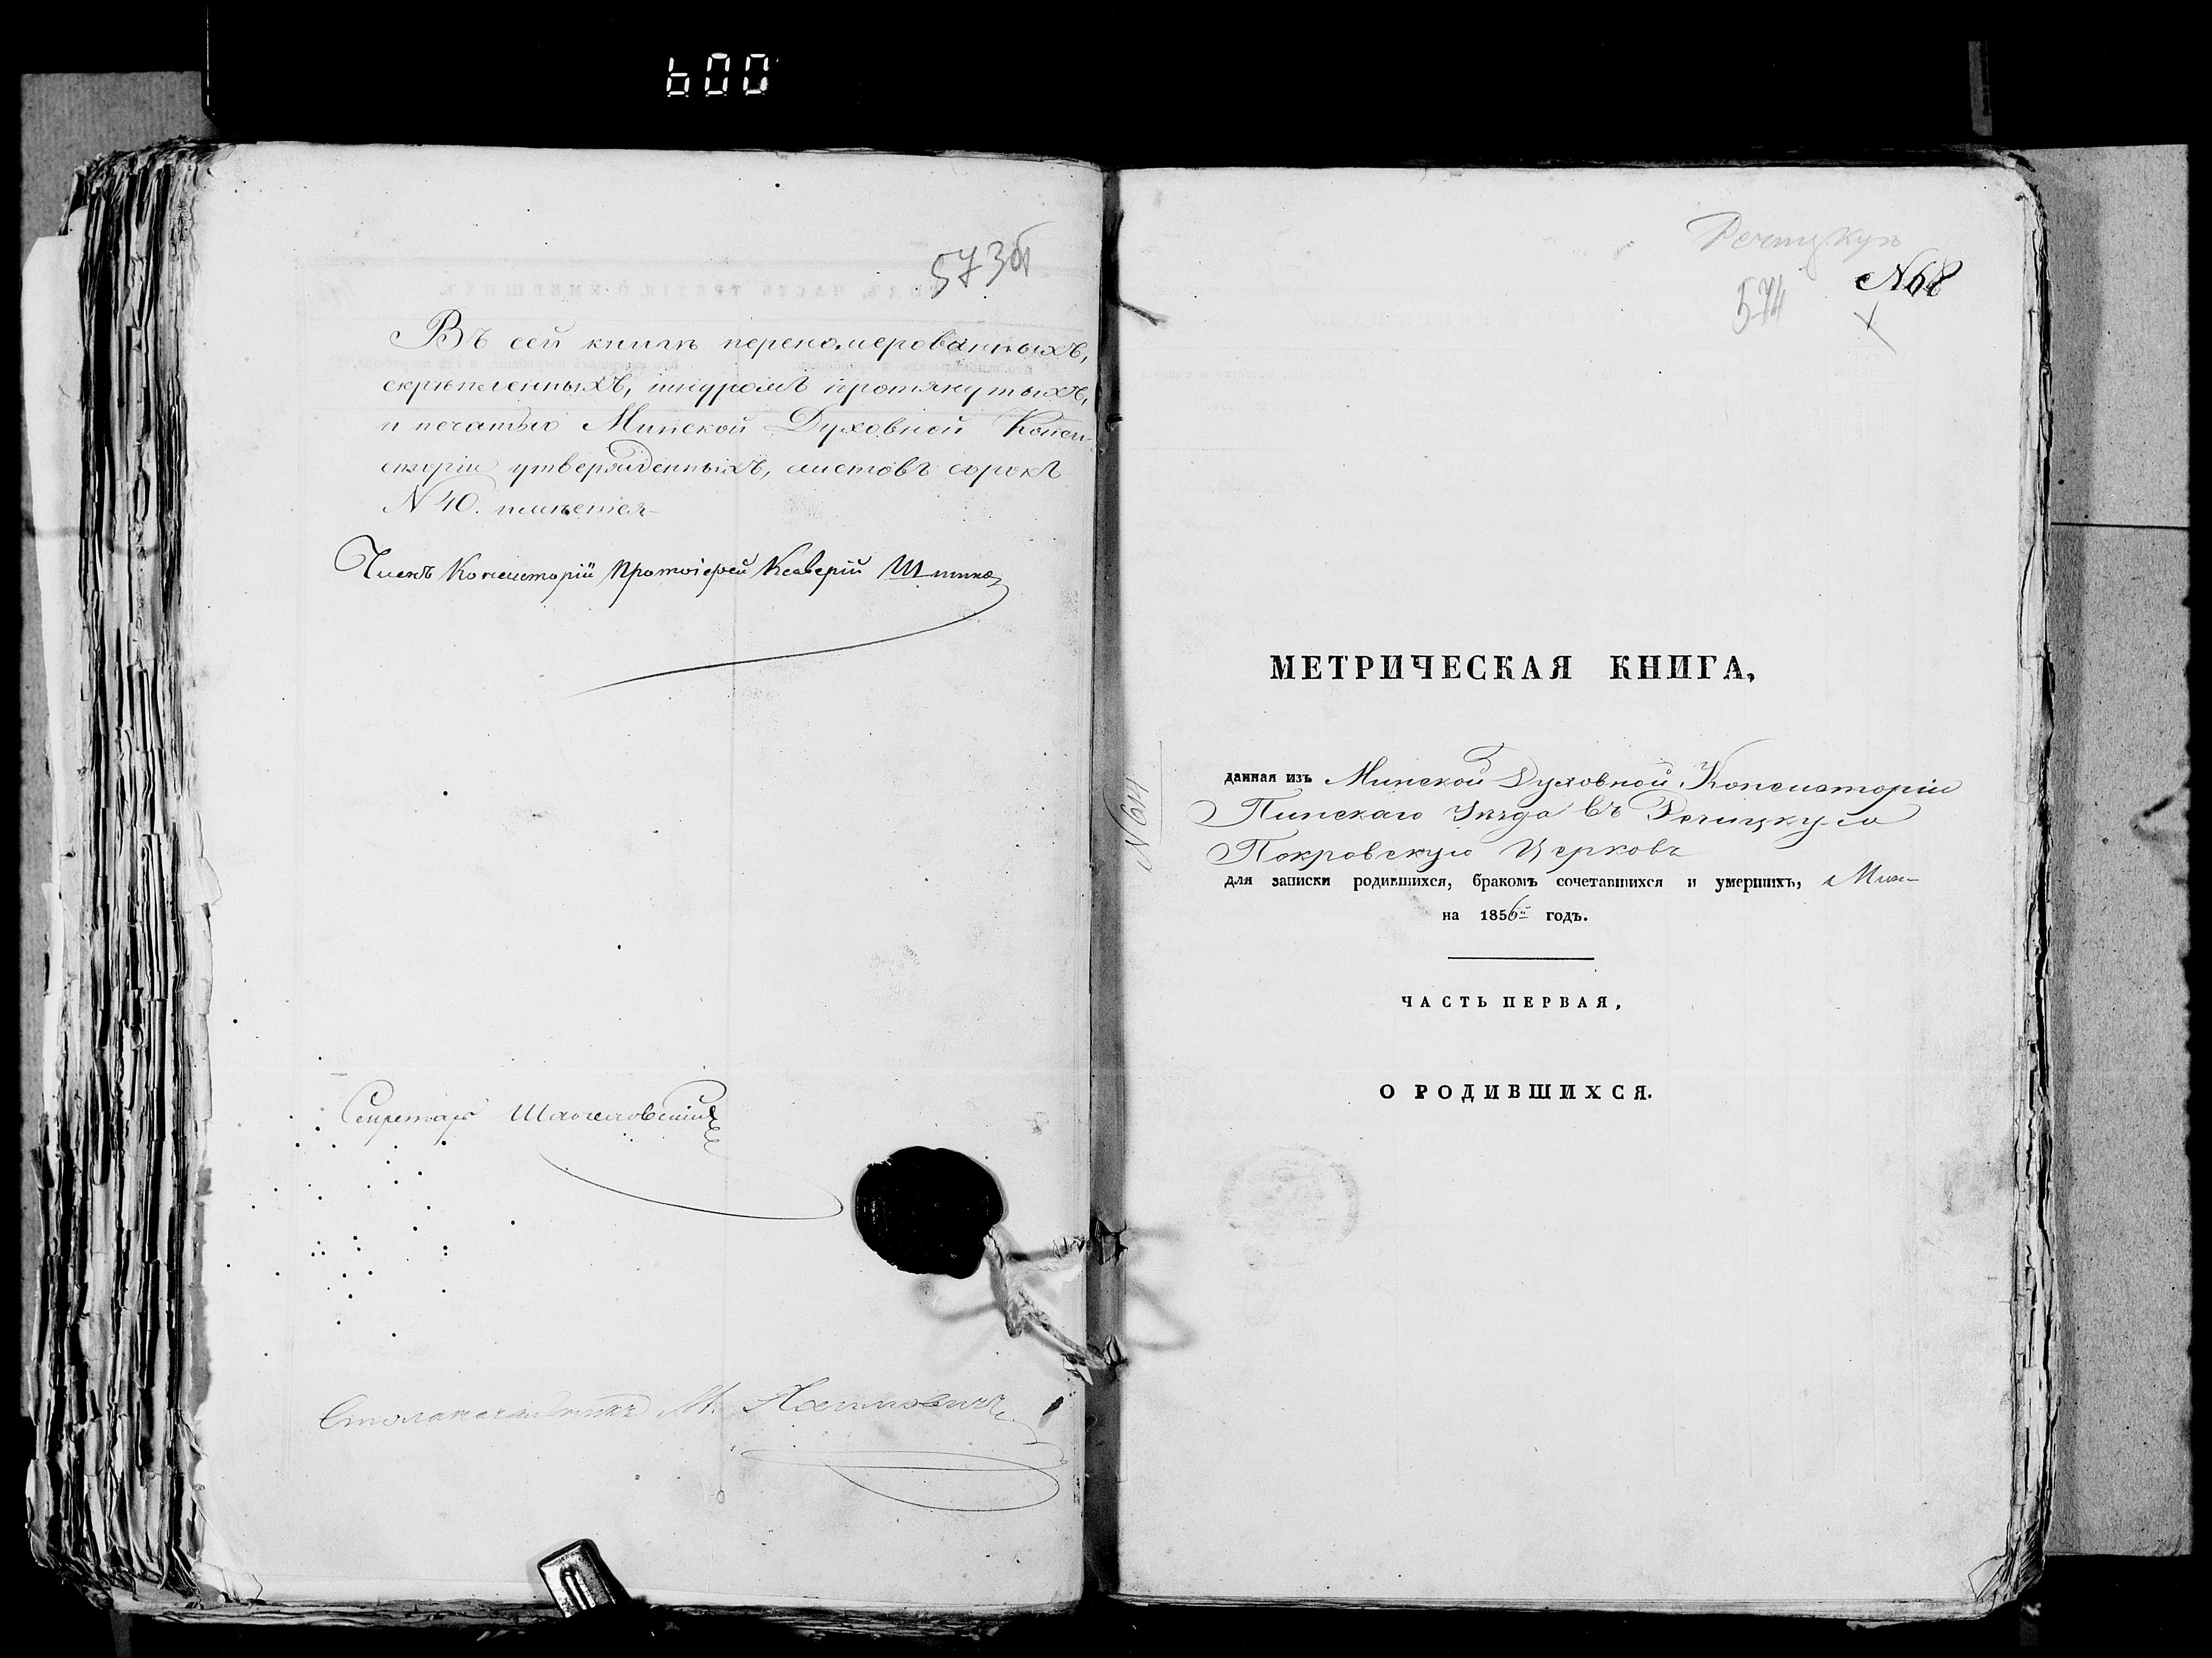 600
573об
Въ сей книгѣ переномерованныхъ,
скрѣпленныхъ, шнуромъ протянутыхъ,
и печатью Минской Духовной Конси-
сторіи утвержденныхъ, листовъ сорокъ
N 40. имѣется
Членъ Консисторіи Протоіерей Ксаверій
Секретарь
Столоначальникъ М.
Речицкую
N68
574
МЕТРИЧЕСКАЯ КНИГА,
данная изъ Минской Духовной Консисторіи
Пинскаго Уѣзда въ Речицкую
Покровскую Церковь
для записки родившихся, бракомъ сочетавшихся и умершихъ,
на 1856й годъ.
ЧАСТЬ ПЕРВАЯ,
О РОДИВШИХСЯ.
N 614